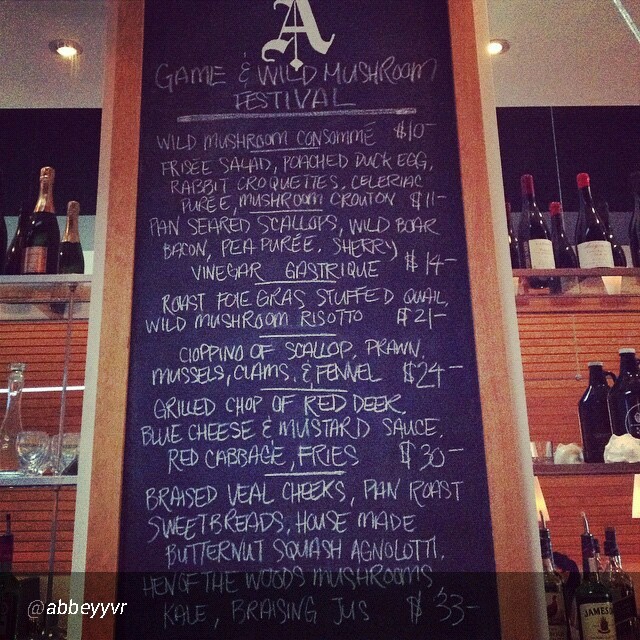 A
GAME & WILD MUSHROOM
FESTIVAL
WILD MUSHROOM CONSOMMÉ $10-
FRISÉE SALAD, POACHED DUCK EGG,
RABBIT CROQUETTES, CELERIAC
PURÉE, MUSHROOM CROUTON $11-
PAN SEARED SCALLOPS, WILD BOAR
BACON, PEA PURÉE, SHERRY
VINEGAR GASTRIQUE $14-
ROAST FOIE GRAS STUFFED QUAIL,
WILD MUSHROOM RISOTTO $21-
CIOPPINO OF SCALLOP, PRAWN,
MUSSELS, CLAMS, & FENNEL $24-
GRILLED CHOP OF RED DEER,
BLUE CHEESE & MUSTARD SAUCE,
RED CABBAGE, FRIES $30-
BRAISED VEAL CHEEKS, PAN ROAST
SWEETBREADS, HOUSE MADE
BUTTERNUT SQUASH AGNOLOTTI,
HEN OF THE WOODS MUSHROOMS
KALE, BRAISING JUS $33-
@abbeyyvr
JAMES